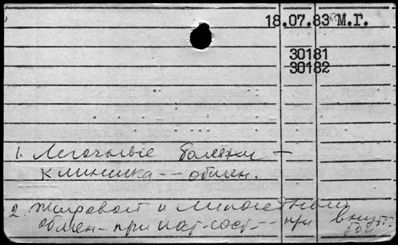 18.07.83 М.Г.
30181
30182
1. Легочные болезни –
клиника -- обмен.
2. Жировой и липоидный
обмен - при пат. сост. - при внут.
бол.